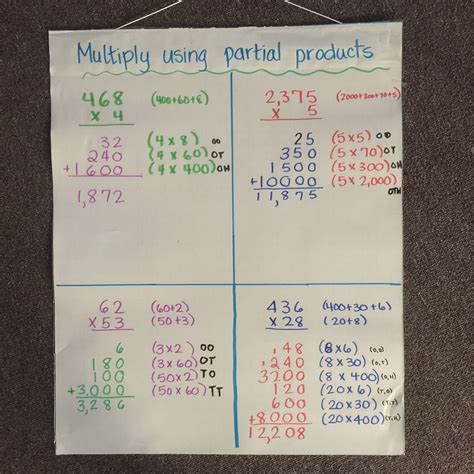 Multiply using partial products
468 (400+60+8)
x 4
32 (4 x 8) OO
240 (4 x 60) OT
+1600 (4 x 400) OH
1,872
2,375 (2000+300+70+5)
x 5
25 (5 x 5) OO
350 (5 x 70) OT
1500 (5 x 300) OH
+10000 (5 x 2,000)
OTH
11,875
62 (60+2)
x 53 (50+3)
6 (3 x 2) OO
180 (3 x 60) OT
100 (50 x 2) TO
+3,000 (50 x 60) TT
3,286
436 (400+30+6)
x 28 (20+8)
48 (8 x 6) (O,O)
240 (8 x 30) (O,T)
3200 (8 x 400) (O,H)
120 (20 x 6) (T,O)
600 (20 x 30) (T,T)
+8000 (20 x 400) (T,H)
12,208